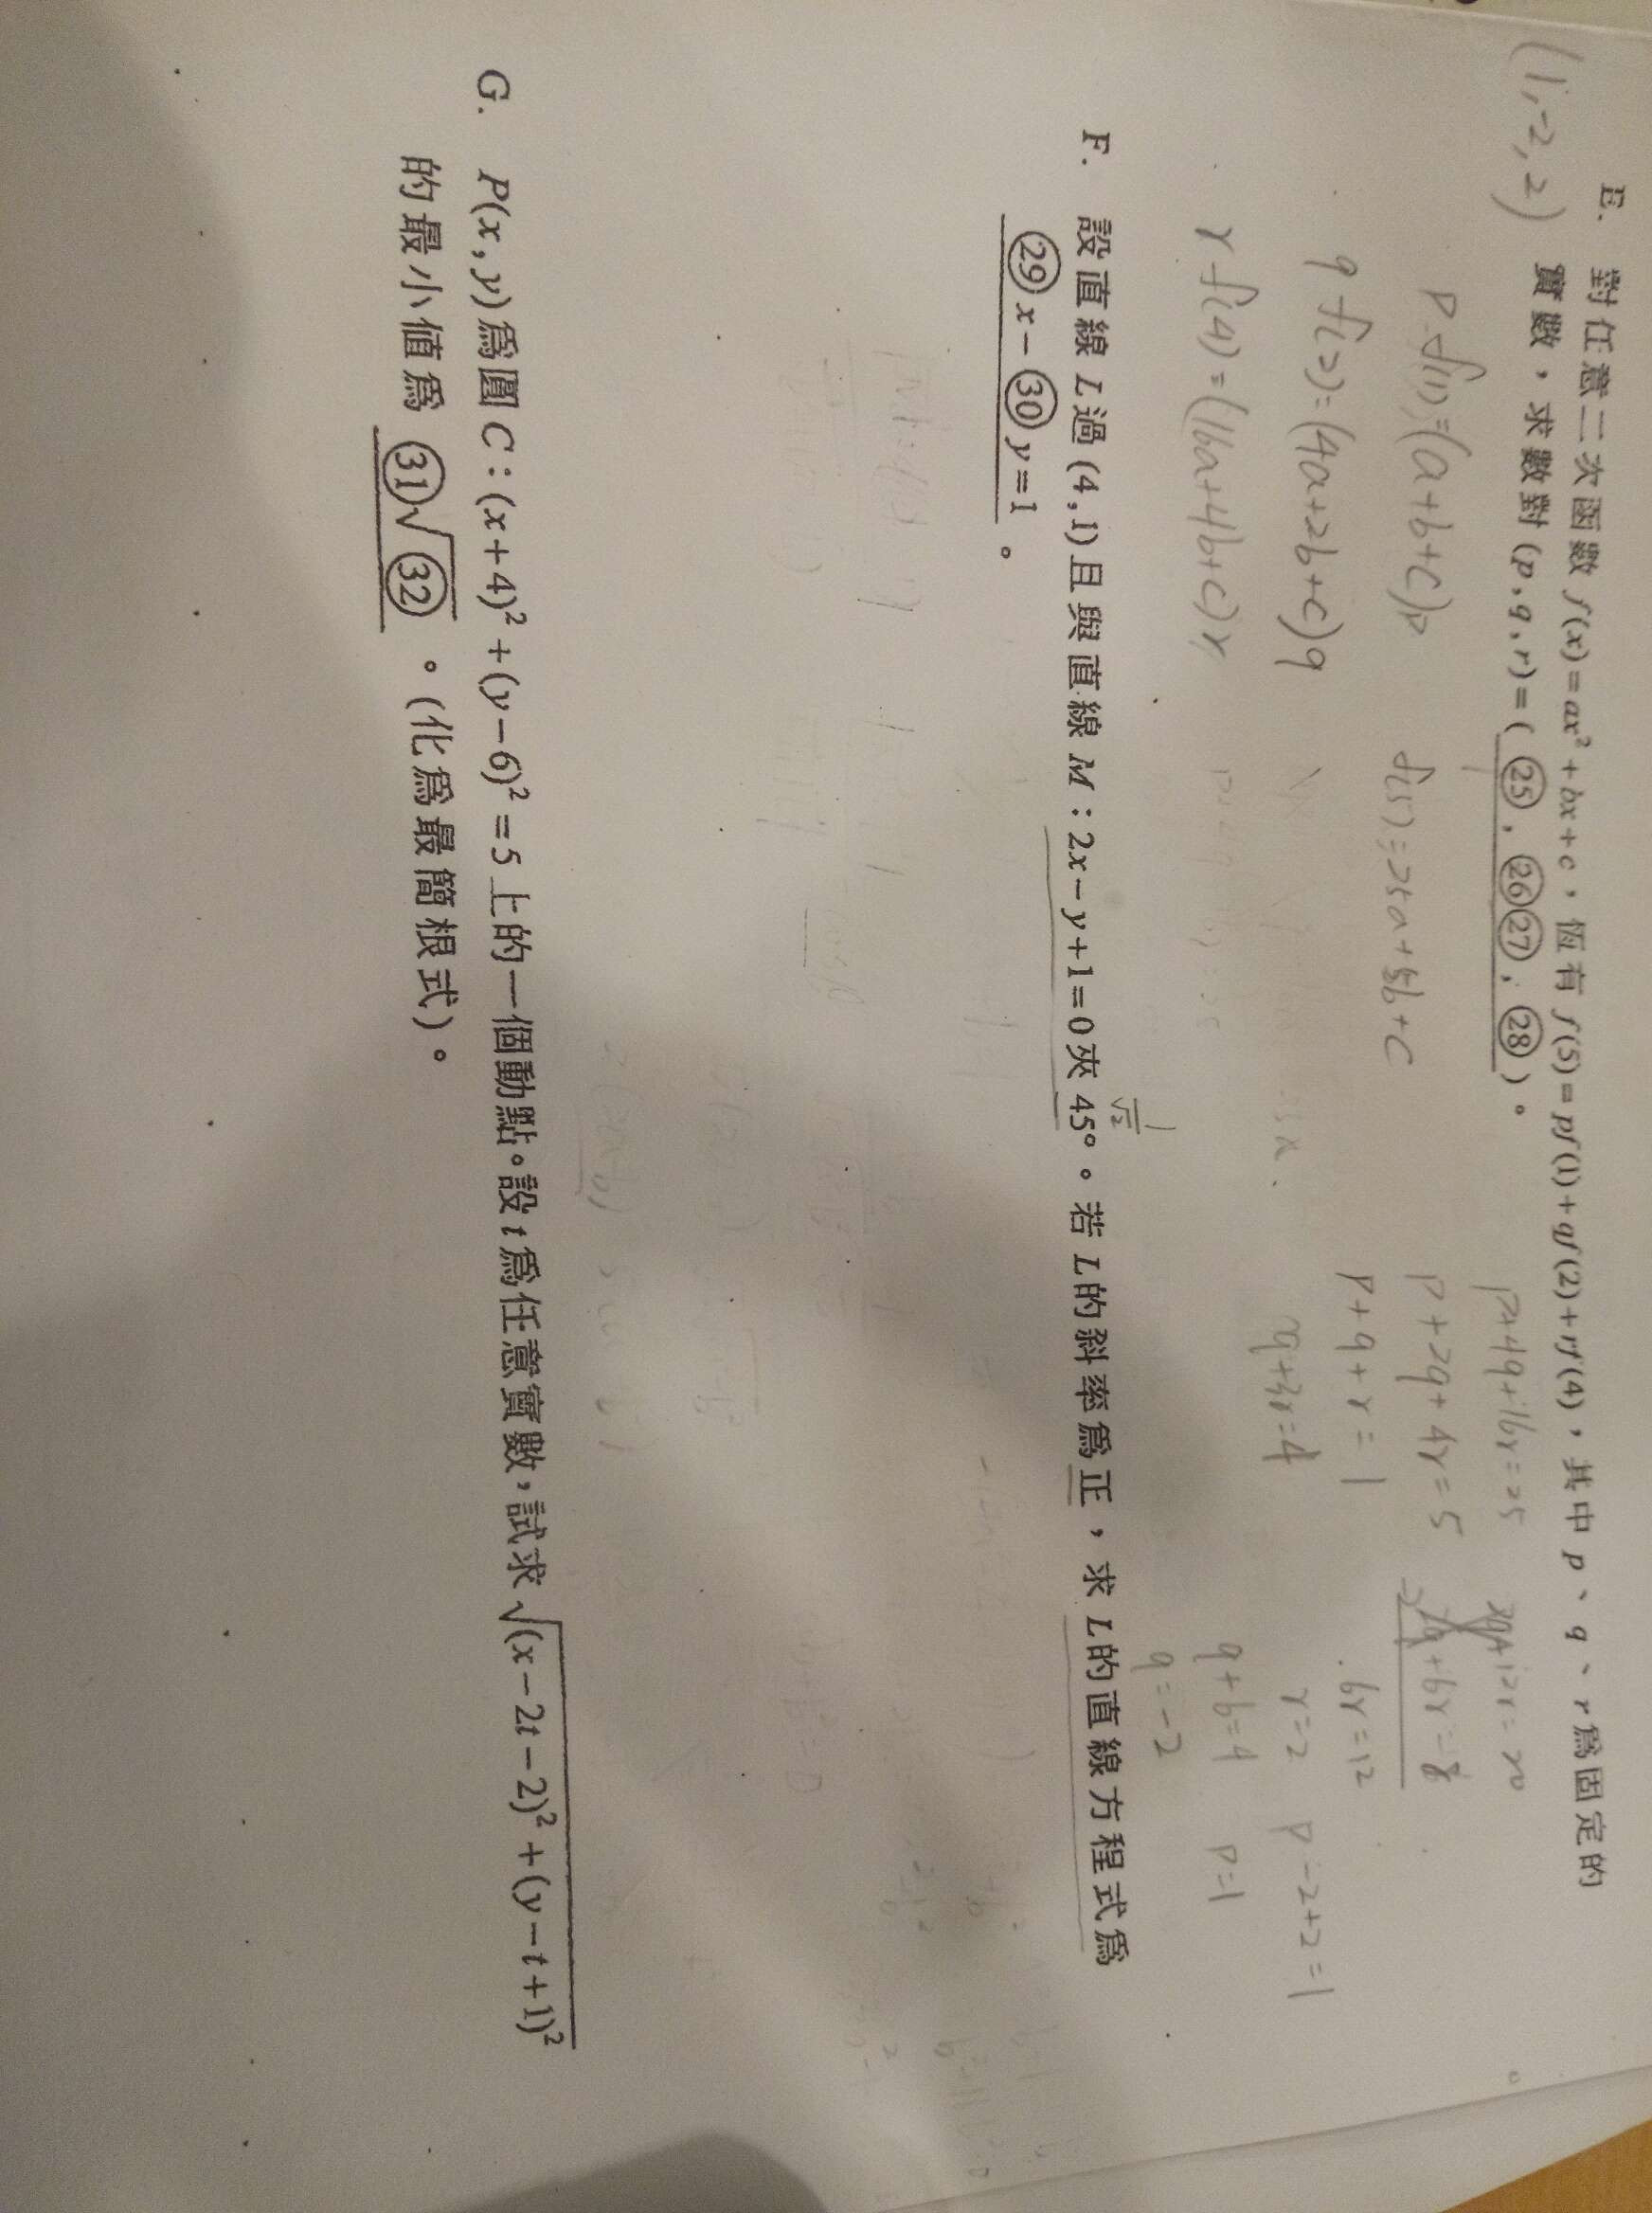 E. 對任意二次函數 f(x)=ax²+bx+c，恆有 f(5)=pf(1)+qf(2)+rf(4)，其中 p、q、r 為固定的
實數，求數對 (p,q,r)=(㉕,㉖㉗,㉘)。
(1,-2,2)
p·f(1)=(a+b+c)p
q·f(2)=(4a+2b+c)q
r·f(4)=(16a+4b+c)r
f(5)=25a+5b+c
p+4q+16r=25
p+2q+4r=5
p+q+r=1
q+3r=4
2q+12r=20
2q+6r=8
6r=12
r=2
q+6=4
q=-2
p-2+2=1
p=1
F. 設直線 L 過 (4,1) 且與直線 M：2x-y+1=0 夾 45°。若 L 的斜率為正，求 L 的直線方程式為
㉙x-㉚y=1。
1/√2
G. P(x,y) 為圓 C：(x+4)²+(y-6)²=5 上的一個動點。設 t 為任意實數，試求 √(x-2t-2)²+(y-t+1)²
的最小值為 ㉛√㉜。(化為最簡根式)。